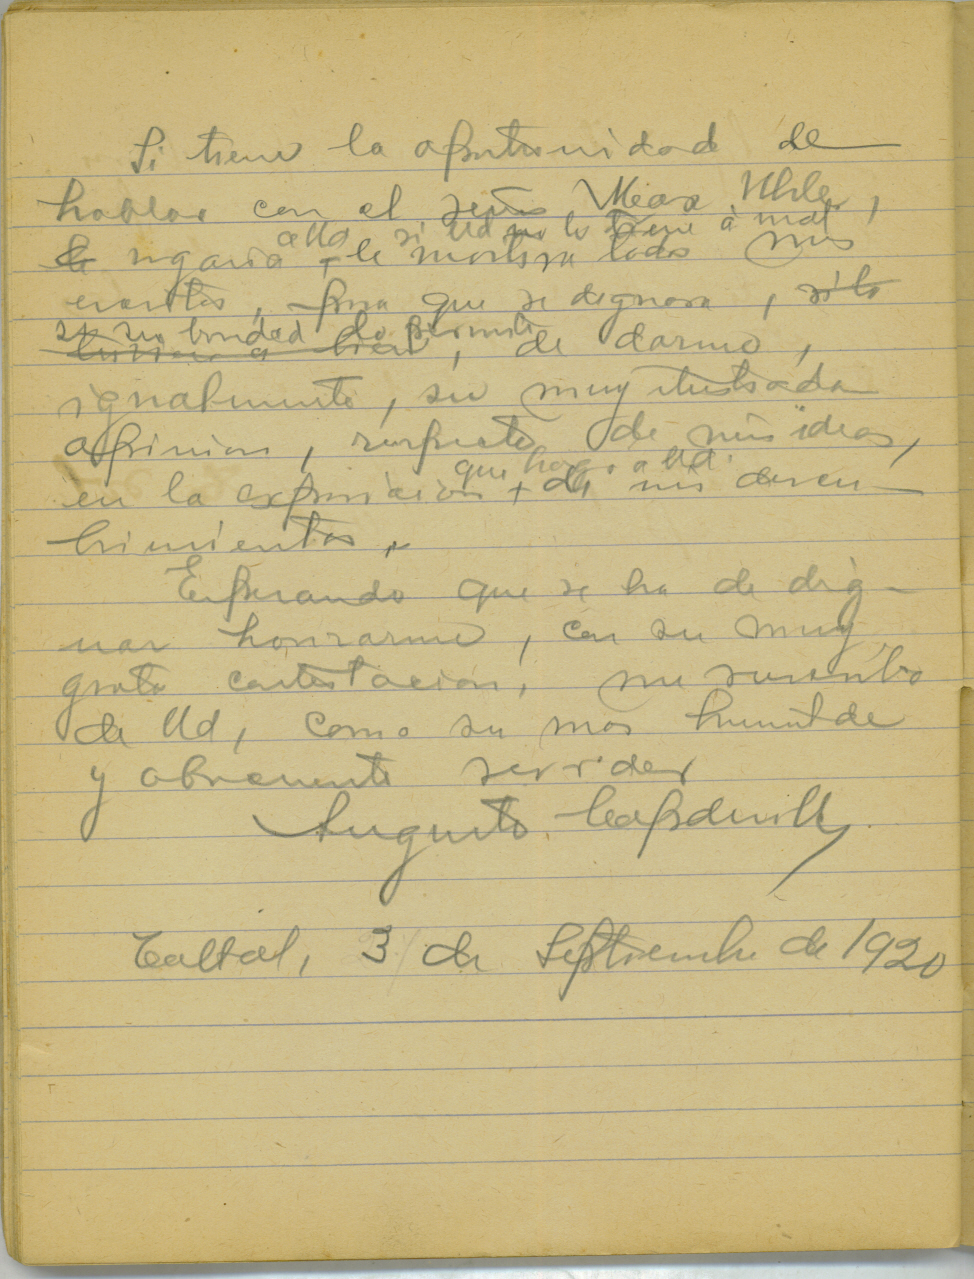 Si tiene la oportunidad de
hablar con el señor Max Uhle,
a Ud si Ud no lo tiene á mal
le rogaria + le mostrara todos mis
escritos, para que se dignara, si lo
si su bondad lo permite
tuviera a bien, de darme,
igualmente, su muy ilustrada
opinion, respecto de mis ideas,
que hago a Ud.
en la exposicion + de mis descu-
brimientos.
Esperando que se ha de dig-
nar honrarme, con su muy
grata contestacion, me suscribo
de Ud, como su mas humilde
y obsecuente servidor
Augusto Capdeville
Taltal, 3 de Septiembre de 1920